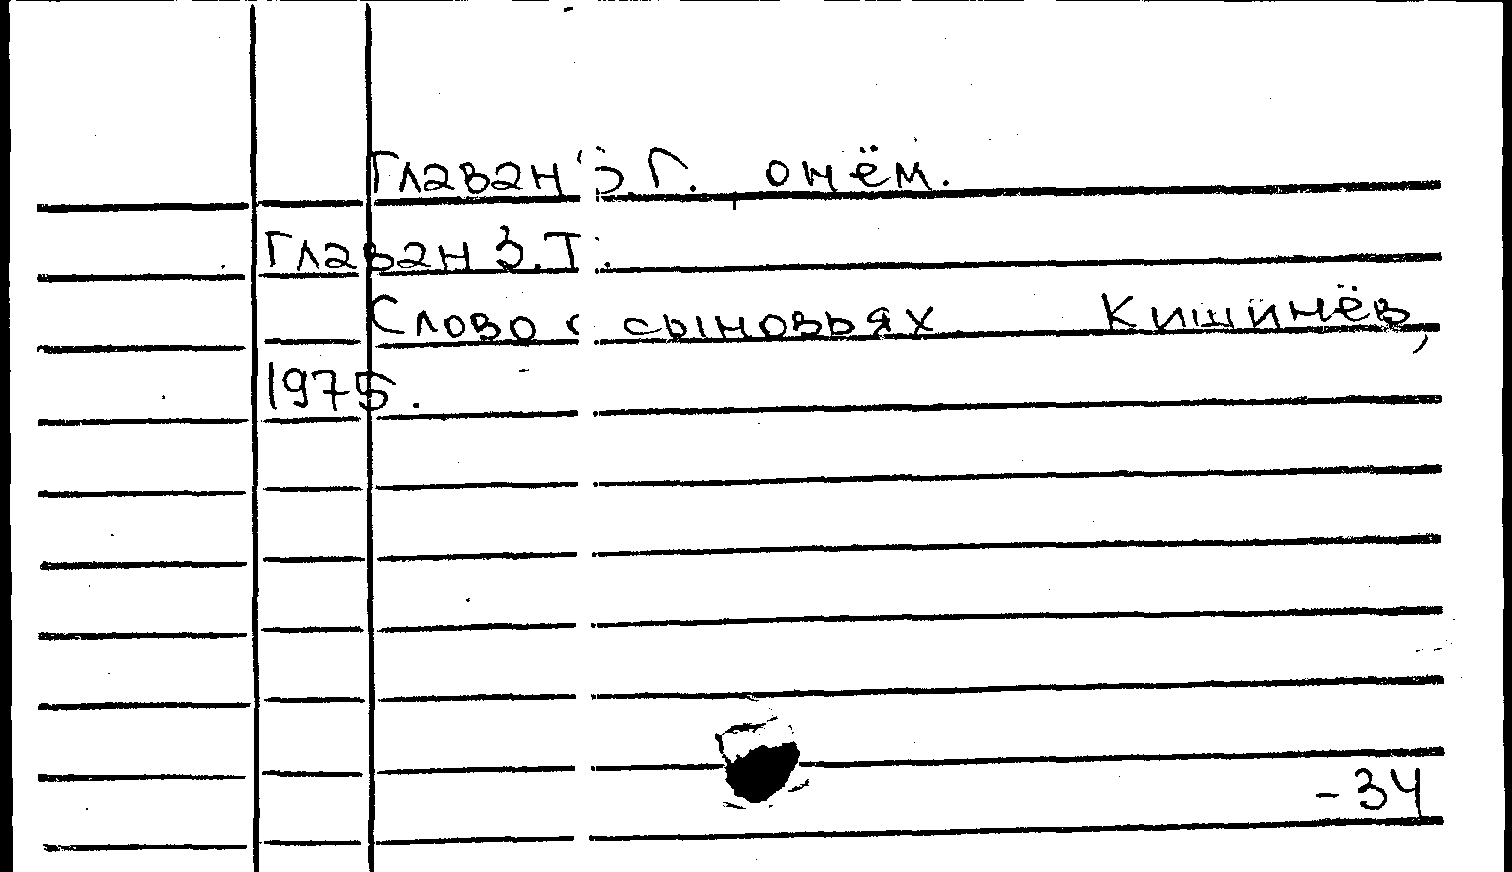 Главан Б.Г. о нём.
Главан З.Т.
Слово о сыновьях Кишинёв,
1975.
-34